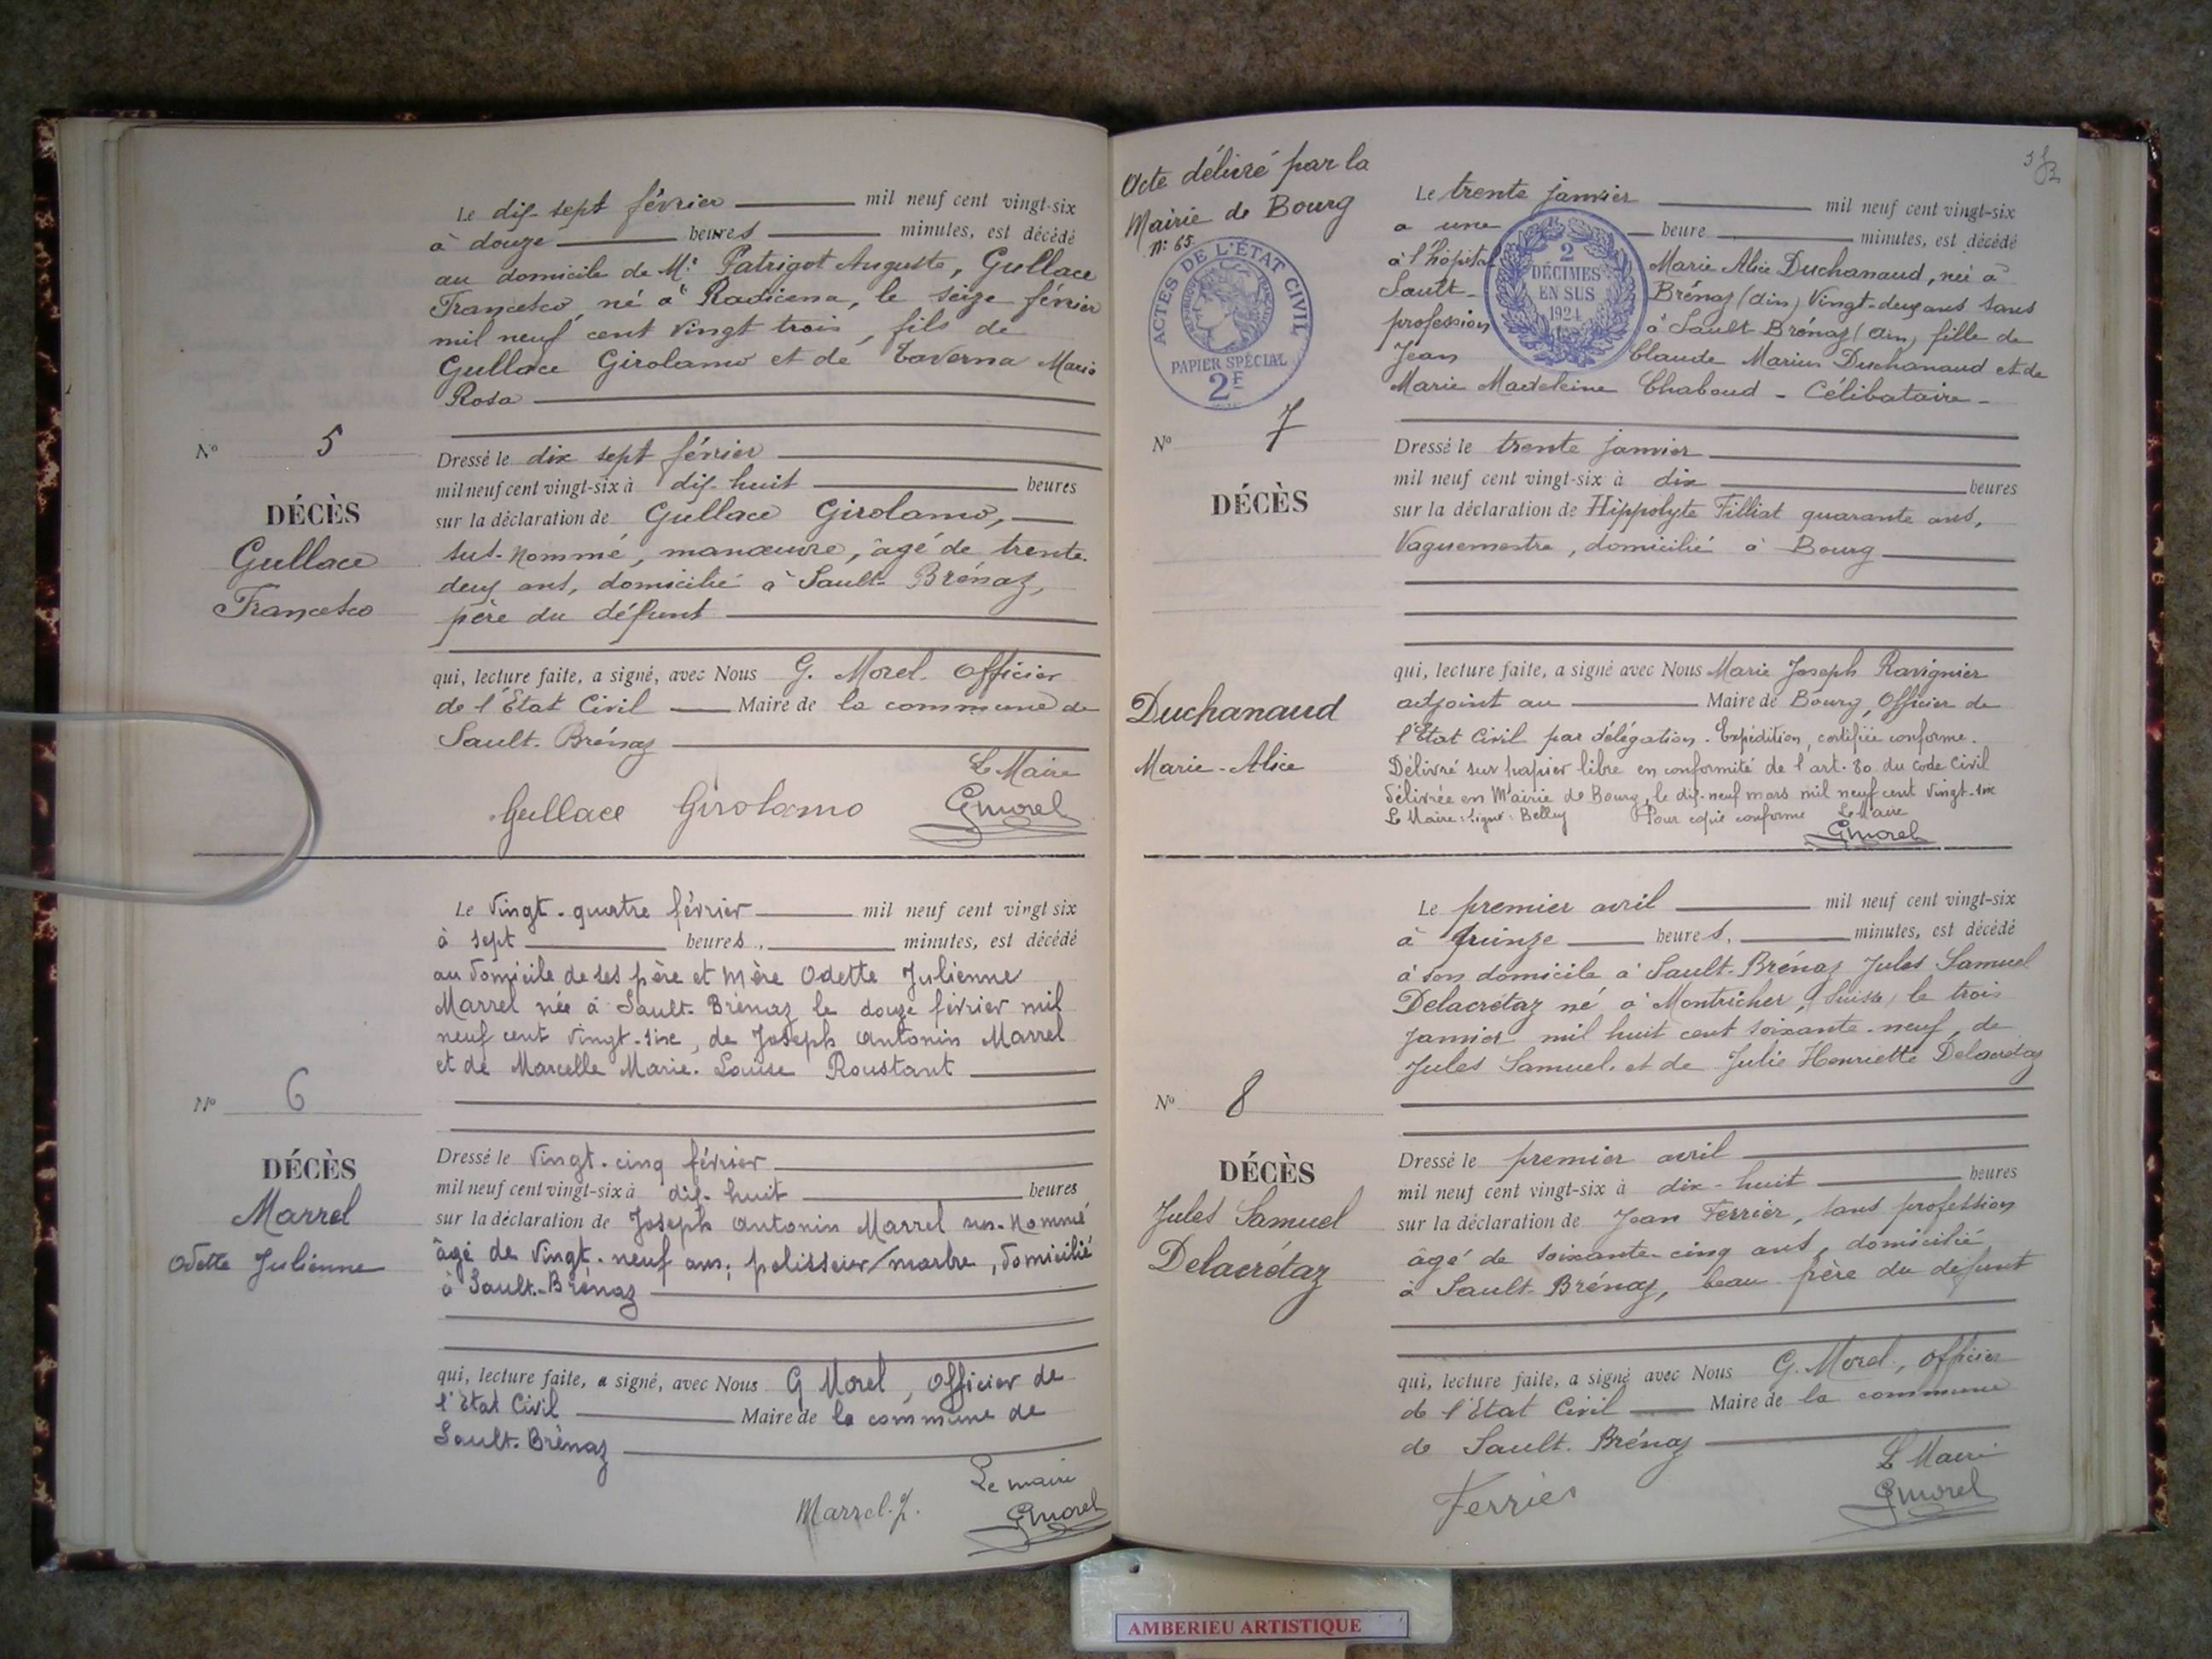 Le dix-sept février mil neuf cent vingt-six
à douze heures minutes, est décédé
au domicile de Mr Patrigot Auguste, Gullace
Francesco, né à Radicena, le seize février
mil neuf cent vingt trois, fils de
Gullace Girolamo et de Taverna Maria
Rosa
No 5
DÉCÈS
Gullace
Francesco
Dressé le dix sept février
mil neuf cent vingt-six à dix-huit heures
sur la déclaration de Gullace Girolamo,
sus-nommé, manœuvre, âgé de trente-
deux ans, domicilié à Sault-Brénaz,
père du défunt
qui, lecture faite, a signé, avec Nous G. Morel Officier
de l'Etat Civil Maire de la commune de
Sault-Brénaz
Le Maire
Gullace Girolamo GMorel
Le vingt-quatre février mil neuf cent vingt six
à sept heures, minutes, est décédé
au domicile de ses père et mère Odette Julienne
Marrel née à Sault-Brénaz le douze février mil
neuf cent vingt-six, de Joseph Antonin Marrel
et de Marcelle Marie-Louise Roustant
No 6
DÉCÈS
Marrel
Odette Julienne
Dressé le vingt-cinq février
mil neuf cent vingt-six à dix-huit heures
sur la déclaration de Joseph Antonin Marrel sus-nommé
âgé de vingt-neuf ans, polisseur/marbre, domicilié
à Sault-Brénaz
qui, lecture faite, a signé, avec Nous G Morel, Officier de
l'Etat Civil Maire de la commune de
Sault-Brénaz
Le maire
Marrel.J. GMorel
Acte délivré par la
Mairie de Bourg
n: 65
ACTES DE L'ÉTAT CIVIL
PAPIER SPÉCIAL
2F
2
DÉCIMES
EN SUS
1924
Le trente janvier mil neuf cent vingt-six
a une heure minutes, est décédé
à l'hôpital Marie Alice Duchanaud, née à
Sault- Brénaz (Ain) Vingt-deux ans sans
profession à Sault-Brénaz (Ain) fille de
Jean Claude Marius Duchanaud et de
Marie Madeleine Chaboud - Célibataire -
No 7
DÉCÈS
Duchanaud
Marie-Alice
Dressé le trente janvier
mil neuf cent vingt-six à dix heures
sur la déclaration de Hippolyte Filliat quarante ans,
Vaguemestre, domicilié à Bourg
qui, lecture faite, a signé avec Nous Marie Joseph Ravignier
adjoint au Maire de Bourg, Officier de
l'Etat Civil par délégation. Expédition, certifiée conforme.
Délivré sur papier libre en conformité de l'art. 80 du Code Civil
délivrée en Mairie de Bourg, le dix-neuf mars mil neuf cent vingt-six
Le Maire: signé: Belley Pour copie conforme Le Maire
GMorel
Le premier avril mil neuf cent vingt-six
à quinze heures, minutes, est décédé
à son domicile à Sault-Brénaz Jules Samuel
Delacrétaz né à Montricher, (Suisse) le trois
janvier mil huit cent soixante-neuf, de
Jules Samuel. et de Julie Henriette Delacrétaz
No 8
DÉCÈS
Jules Samuel
Delacrétaz
Dressé le premier avril
mil neuf cent vingt-six à dix-huit heures
sur la déclaration de Jean Ferrier, sans profession
âgé de soixante-cinq ans, domicilié
à Sault-Brénaz, beau père du défunt
qui, lecture faite, a signé avec Nous G. Morel, officier
de l'Etat Civil Maire de la commune
de Sault-Brénaz
Le Maire
Ferrier GMorel
AMBERIEU ARTISTIQUE